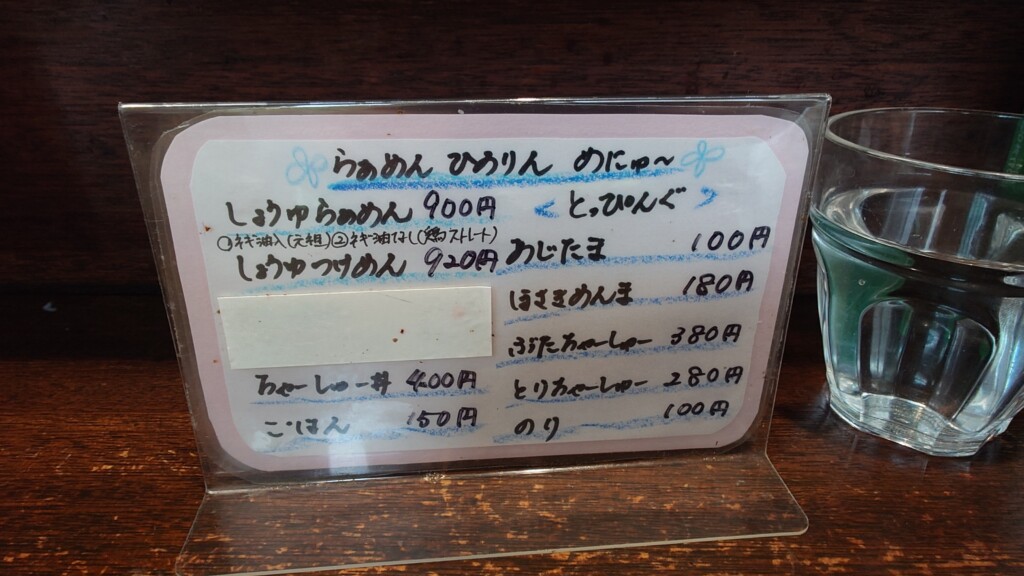 らぁめん ひうりん めにゅ～
しょうゆらぁめん 900円
①ネギ油入(元祖)②ネギ油なし(鶏ストレート)
しょうゆつけめん 920円
ちゃーしゅー丼 400円
ごはん 150円
< とっぴんぐ >
あじたま 100円
ほさきめんま 180円
ぶたちゃーしゅー 380円
とりちゃーしゅー 280円
のり 100円